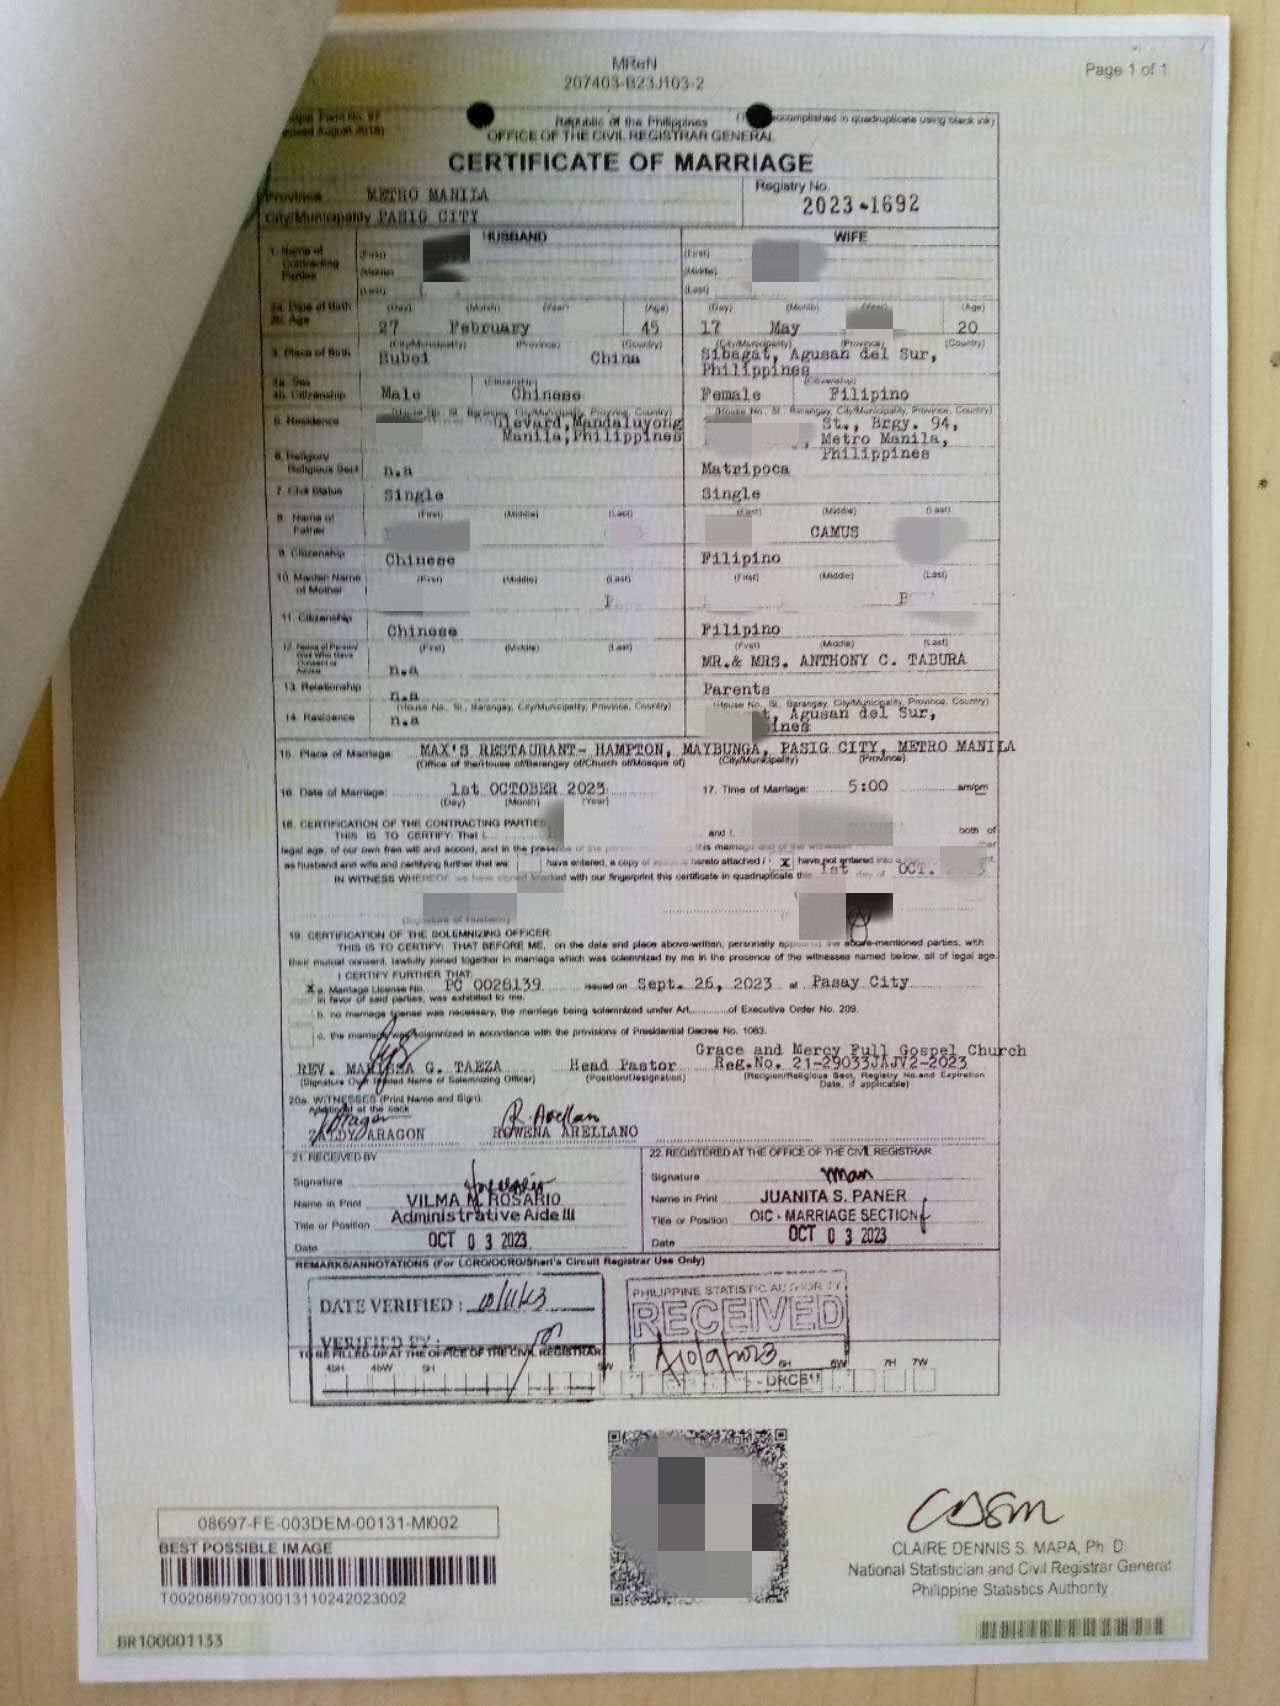 MReN
207403-B23J103-2
Page 1 of 1
Republic of the Philippines
accomplished in quadruplicate using black ink)
OFFICE OF THE CIVIL REGISTRAR GENERAL
CERTIFICATE OF MARRIAGE
Province METRO MANILA
Registry No.
City/Municipality PASIG CITY
2023-1692
HUSBAND WIFE
1. Name of Contracting Parties
(First) (First)
(Middle) (Middle)
(Last) (Last)
2a. Date of Birth (Day) (Month) (Year) (Age) (Day) (Month) (Year) (Age)
2b. Age 27 February 45 17 May 20
3. Place of Birth (City/Municipality) (Province) (Country) (City/Municipality) (Province) (Country)
Hubei China Sibagat, Agusan del Sur,
Philippines
4a. Sex (Citizenship) (Citizenship)
4b. Citizenship Male Chinese Female Filipino
5. Residence (House No., St., Barangay, City/Municipality, Province, Country) (House No., St., Barangay, City/Municipality, Province, Country)
levard, Mandaluyong St., Brgy. 94,
Manila, Philippines , Metro Manila,
Philippines
6. Religion/
Religious Sect n.a Matripoca
7. Civil Status Single Single
8. Name of Father (First) (Middle) (Last) (First) (Middle) (Last)
CAMUS
9. Citizenship Chinese Filipino
10. Maiden Name of Mother (First) (Middle) (Last) (First) (Middle) (Last)
11. Citizenship Chinese Filipino
(First) (Middle) (Last) (First) (Middle) (Last)
n.a MR.& MRS. ANTHONY C. TABURA
13. Relationship n.a Parents
14. Residence (House No., St., Barangay, City/Municipality, Province, Country) (House No., St., Barangay, City/Municipality, Province, Country)
n.a t, Agusan del Sur,
ines
15. Place of Marriage: MAX'S RESTAURANT- HAMPTON, MAYBUNGA, PASIG CITY, METRO MANILA
(Office of the/House of/Barangay of/Church of/Mosque of) (City/Municipality) (Province)
16. Date of Marriage: 1st OCTOBER 2023 17. Time of Marriage: 5:00 am/pm
(Day) (Month) (Year)
18. CERTIFICATION OF THE CONTRACTING PARTIES
THIS IS TO CERTIFY: That I, and I, both of
legal age, of our own free will and accord, and in the presence of the this marriage and of the witnesses
as husband and wife and certifying further that we: have entered, a copy of which is hereto attached / x have not entered into a
IN WITNESS WHEREOF, we have signed/marked with our fingerprint this certificate in quadruplicate this 1st day of OCT.
(Signature of Husband)
19. CERTIFICATION OF THE SOLEMNIZING OFFICER
THIS IS TO CERTIFY: THAT BEFORE ME, on the date and place above-written, personally appeared the above-mentioned parties, with
their mutual consent, lawfully joined together in marriage which was solemnized by me in the presence of the witnesses named below, all of legal age.
I CERTIFY FURTHER THAT:
X a. Marriage License No. PC 0028139 issued on Sept. 26, 2023 at Pasay City
in favor of said parties, was exhibited to me.
b. no marriage license was necessary, the marriage being solemnized under Art. of Executive Order No. 209.
c. the marriage was solemnized in accordance with the provisions of Presidential Decree No. 1083.
Grace and Mercy Full Gospel Church
REV. G. TAEZA Head Pastor Reg.No. 21-29033JAJV2-2023
(Signature Over Printed Name of Solemnizing Officer) (Position/Designation) (Religion/Religious Sect, Registry No. and Expiration
Date, if applicable)
20a. WITNESSES (Print Name and Sign):
Additional at the back
Aragon R. Arellan
ZALDY ARAGON ROWENA ARELLANO
21. RECEIVED BY 22. REGISTERED AT THE OFFICE OF THE CIVIL REGISTRAR
Signature Signature
Name in Print VILMA M. ROSARIO Name in Print JUANITA S. PANER
Title or Position Administrative Aide III Title or Position OIC - MARRIAGE SECTION
Date OCT 03 2023 Date OCT 03 2023
REMARKS/ANNOTATIONS (For LCRO/OCRG/Shari'a Circuit Registrar Use Only)
DATE VERIFIED : 10/11/23
VERIFIED BY :
PHILIPPINE STATISTIC AUTHORITY
RECEIVED
10/9/2023
TO BE FILLED-UP AT THE OFFICE OF THE CIVIL REGISTRAR
4bH 4bW 5H 5W 6H 6W 7H 7W
08697-FE-003DEM-00131-MI002
BEST POSSIBLE IMAGE
T002086970030013110242023002
CLAIRE DENNIS S. MAPA, Ph. D.
National Statistician and Civil Registrar General
Philippine Statistics Authority
BR100001133